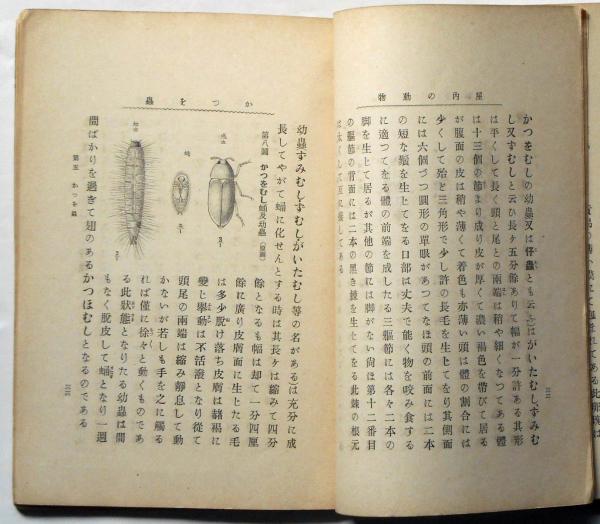 屋内の動物
かつをむしの幼蟲又は仔蟲とも云ふ)はがいたむし、すみむ
し又すむしと云ひ長ヶ五分餘ありて幅が一分許ある其形
は平くして長く頭と尾との兩端は稍や細くなつてゐる體
は十三個の節より成り皮が厚くて濃い褐色を帶びて居る
が腹面の皮は稍や薄くて着色も亦薄い頭は體の割合には
少くして殆と三角形で少し許の長毛を生してをり其側面
には六個づつ圓形の單眼があつてなほ頭の前面には二本
の短な鬚を生してをる口部は丈夫で能く物を咬み食する
に適つてをる體の前端を成したる三軀節には各々二本の
脚を生して居るが其他の節には脚がない尙ほ第十二番目
の軀節の背面には二本の黑き棘を生してをる此棘の根元
は太くして互に接してある
かつを蟲
幼蟲すみむしすむしがいたむし等の名がある)は充分に成
長してやがて蛹に化せんとする時は其長ヶは縮みて四分
第八圖 かつをむし蛹及幼蟲(原圖)
成虫
蛹
幼虫
餘となるも幅は却て一分四厘
餘に廣り皮膚面に生したる毛
は多少脫け落ち皮膚は赭褐に
變し擧動は不活潑となり從て
頭尾の兩端は縮み靜息して動
かないが若しも手を之に觸る
れば僅に徐々と動くものであ
る此狀態となりたる幼蟲は間
もなく脫皮して蛹となり一週
間ばかりを過ぎて翅のあるかつほむしとなるのである
第五 かつを蟲